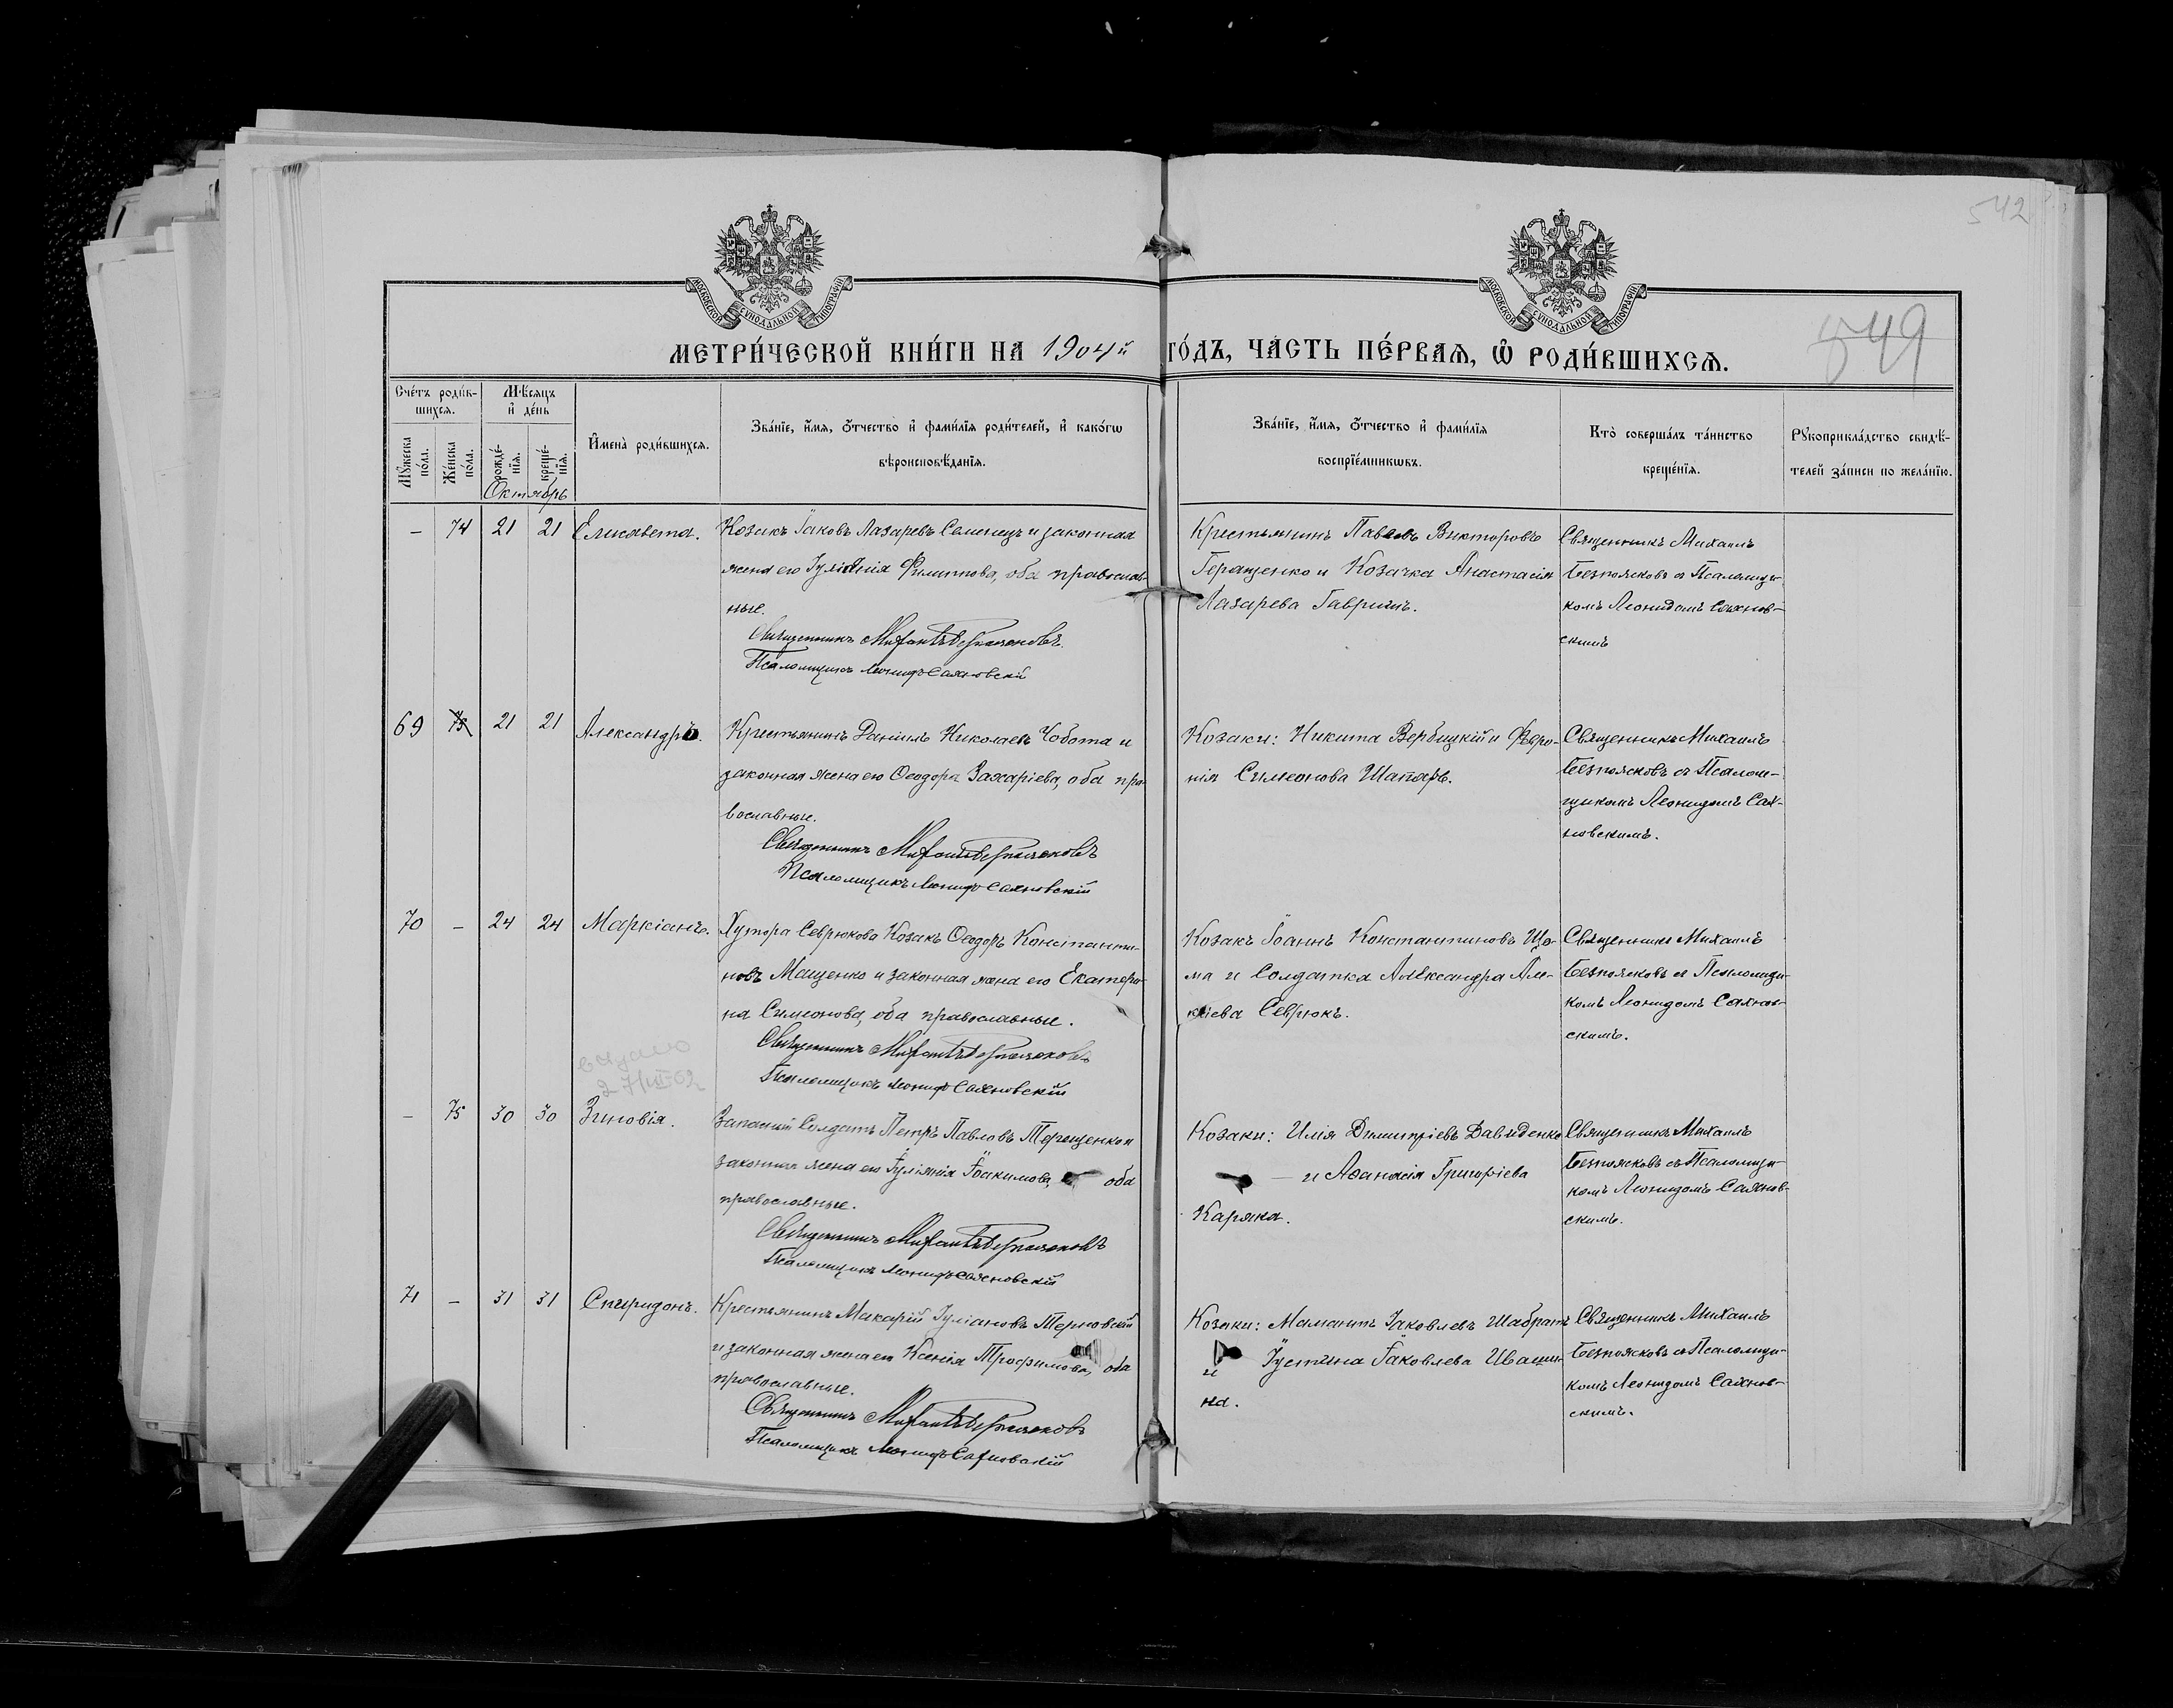 542
549
МОСКОВСКОЙ СѴНОДАЛЬНОЙ ТИПОГРАФІИ
МОСКОВСКОЙ СѴНОДАЛЬНОЙ ТИПОГРАФІИ
МЕТРИ́ЧЕСКОЙ КНИ́ГИ НА 1904й ГО́ДЪ, ЧА́СТЬ ПЕ́РВАѦ, Ѽ РОДИ́ВШИХСѦ.
Сче́тъ роди́в-
шихсѧ.
Мꙋ́жеска по́ла.
Же́нска по́ла.
Мѣ́сѧцъ
и҆ де́нь
рожде́-
нїѧ.
креще́-
нїѧ.
Октябрь
И҆мена̀ роди́вшихсѧ.
Зва́нїе, и҆́мѧ, ѻ҆́тчество и҆ фами́лїѧ роди́телей, и҆ како́гѡ
вѣроисповѣ́данїѧ.
Зва́нїе, и҆́мѧ, ѻ҆́тчество и҆ фами́лїѧ
воспрїе́мникѡвъ.
Кто̀ соверша́лъ та́инство
креще́нїѧ.
Рꙋкоприкла́дство свидѣ́-
телей за́писи по жела́нїю.
– 74 21 21 Елисавета.
Козакъ Іаковъ Лазаревъ Семенец и законная
жена его Іуліанія Филиппова, оба православ-
ные.
Священникъ Михаилъ Безпоясковъ
Псаломщикъ Леонидъ Сахновскій
Крестьянинъ Павелъ Викторовъ
Геращенко и Козачка Анастасія
Лазарева Гавришъ.
Священникъ Михаилъ
Безпоясковъ съ Псаломщи-
комъ Леонидомъ Сахнов-
скимъ
69 75 21 21 Александръ.
Крестьянинъ Даніилъ Николаевъ Чобота и
законная жена его Ѳеодора Захаріева, оба пра-
вославные.
Священникъ Михаилъ Безпоясковъ
Псаломщикъ Леонидъ Сахновскій
Козаки: Никита Вербицкій и Февро-
нія Симеонова Шапарь.
Священникъ Михаилъ
Безпоясковъ съ Псалом-
щикомъ Леонидомъ Сах-
новскимъ.
70 – 24 24 Маркіанъ.
Хутора Севрюкова Козакъ Ѳеодоръ Константи-
новъ Мащенко и законная жена его Екатери-
на Симеонова, оба православные.
Священникъ Михаилъ Безпоясковъ
Псаломщикъ Леонидъ Сахновскій
Козакъ Іоаннъ Константиновъ Що-
ма и Солдатка Александра Але-
ксіева Севрюкъ.
Священникъ Михаилъ
Безпоясковъ съ Псаломщи-
комъ Леонидомъ Сахнов-
скимъ.
– 75 30 30 Зиновія.
Запасный Солдатъ Петръ Павловъ Терещенко и
законная жена его Іуліанія Іоакимова, оба
православные.
Священникъ Михаилъ Безпоясковъ
Псаломщикъ Леонидъ Сахновскій
Козаки: Илія Димитріевъ Давиденко
– и Аѳанасія Григоріева
Каряка.
Священникъ Михаилъ
Безпоясковъ съ Псаломщи-
комъ Леонидомъ Сахнов-
скимъ.
71 – 31 31 Спиридонъ.
Крестьянинъ Макарій Іуліановъ Терновскій
и законная жена его Ксенія Трофимова, оба
православные.
Священникъ Михаилъ Безпоясковъ
Псаломщикъ Леонидъ Сахновскій
Козаки: Іаковлевъ
и Іустина Іаковлева Иващи-
на.
Священникъ Михаилъ
Безпоясковъ съ Псаломщи-
комъ Леонидомъ Сахнов-
скимъ.